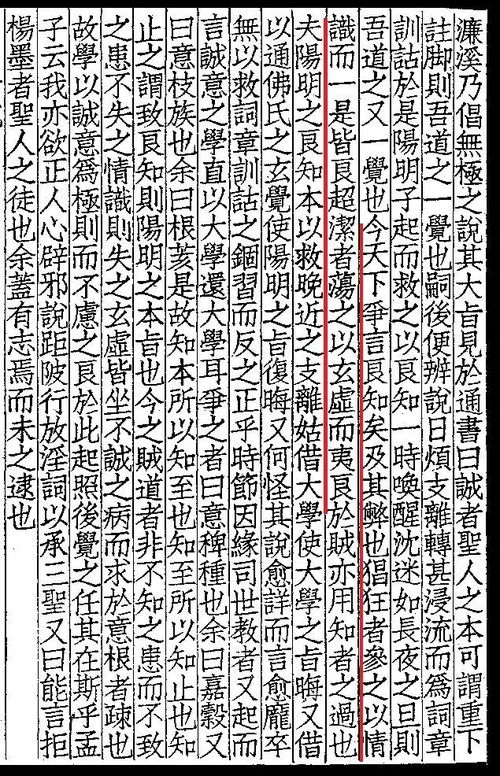 濂溪乃倡無極之說其大旨見於通書曰誠者聖人之本可謂重下
註脚則吾道之一覺也嗣後便辨說日煩支離轉甚浸流而爲詞章
訓詁於是陽明子起而救之以良知一時喚醒沈迷如長夜之旦則
吾道之又一覺也今天下爭言良知矣及其弊也猖狂者參之以情
識而一是皆良超潔者蕩之以玄虛而夷良於賊亦用知者之過也
夫陽明之良知本以救晚近之支離姑借大學使大學之旨晦又借
以通佛氏之玄覺使陽明之旨復晦又何怪其說愈詳而言愈龐卒
無以救詞章訓詁之錮習而反之正乎時節因緣司世教者又起而
言誠意之學直以大學還大學耳爭之者曰意稗種也余曰嘉穀又
曰意枝族也余曰根荄是故知本所以知至也知至所以知止也知
止之謂致良知則陽明之本旨也今之賊道者非不知之患而不致
之患不失之情識則失之玄虛皆坐不誠之病而求於意根者疎也
故學以誠意爲極則而不慮之良於此起照後覺之任其在斯乎孟
子云我亦欲正人心辟邪說距陂行放淫詞以承三聖又曰能言拒
楊墨者聖人之徒也余蓋有志焉而未之逮也